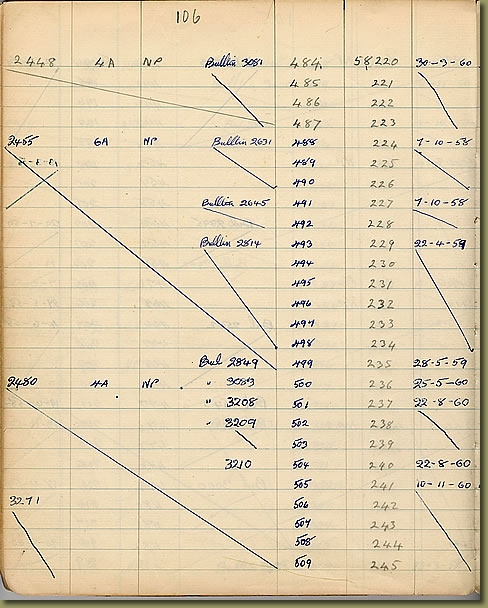 106
2448 4A NP Bullin 3081 484 58220 30-3-60
485 221
486 222
487 223
2455 6A NP Bullin 2631 488 224 7-10-58
489 225
490 226
Bullin 2645 491 227 7-10-58
492 228
Bullin 2814 493 229 22-4-59
494 230
495 231
496 232
497 233
498 234
Bul 2849 499 235 28-5-59
2480 4A NP " 3083 500 236 25-5-60
" 3208 501 237 22-8-60
" 3209 502 238
503 239
3210 504 240 22-8-60
505 241 10-11-60
3271 506 242
507 243
508 244
509 245